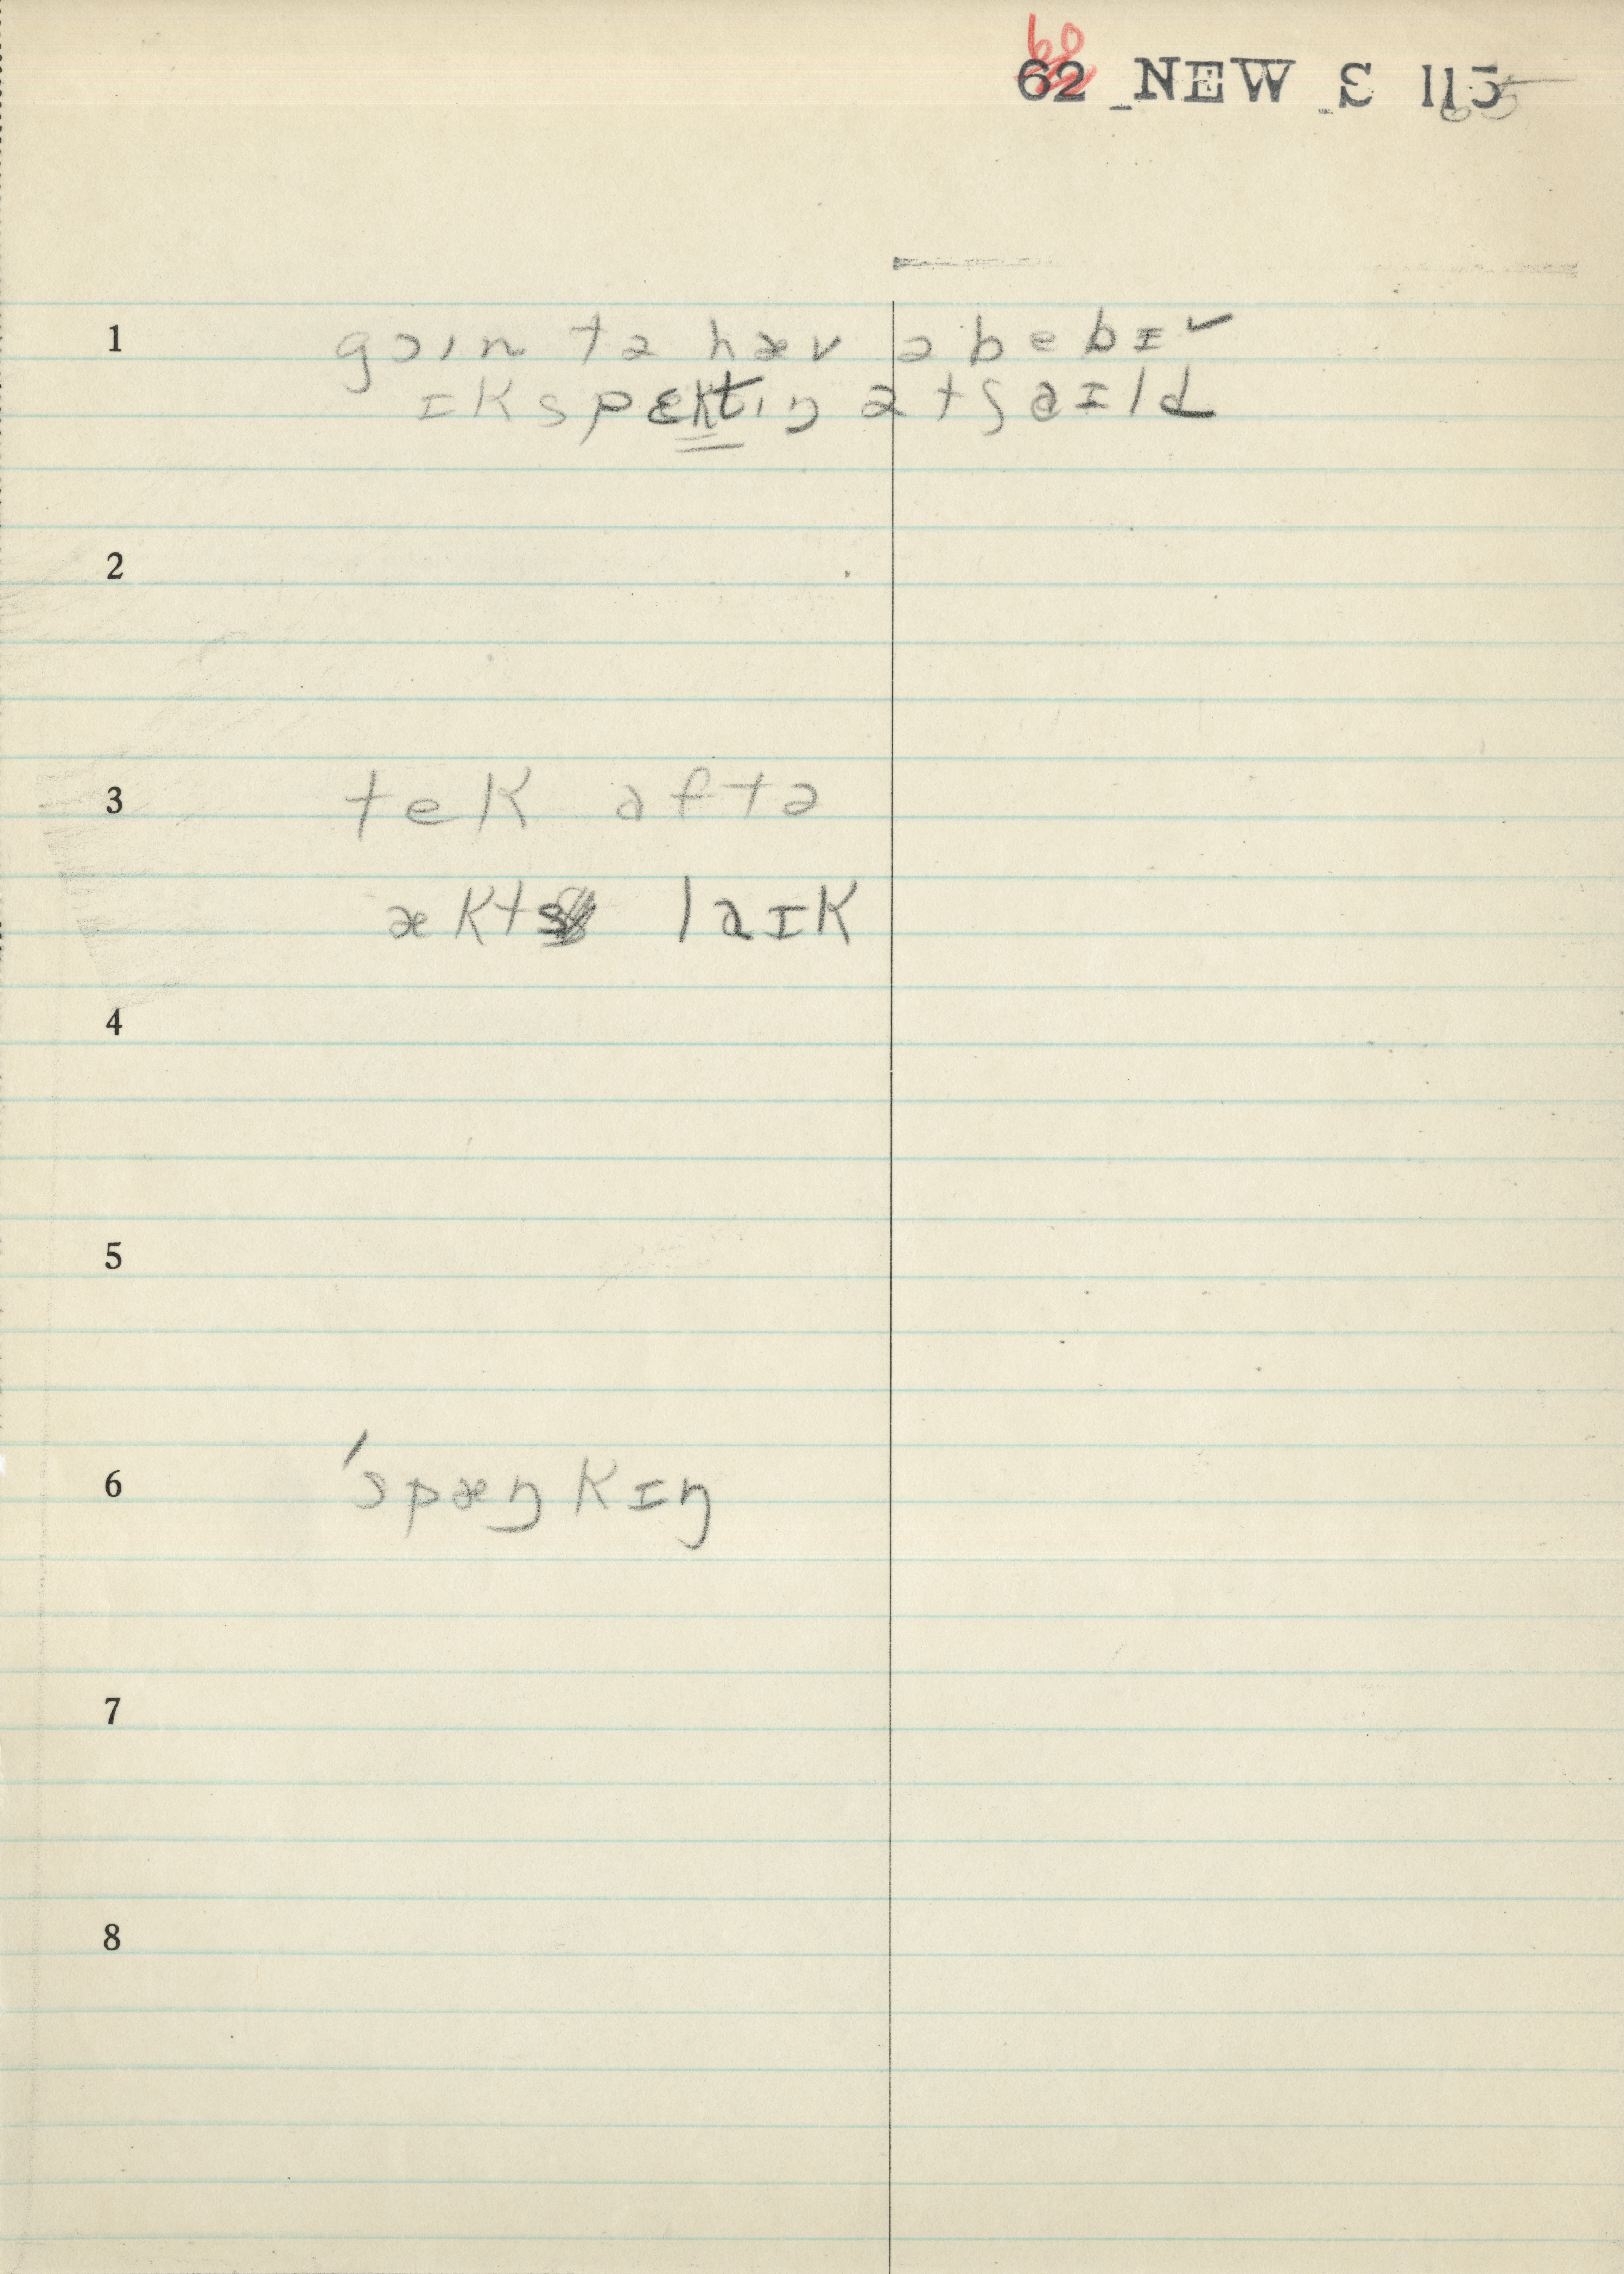 60
62 NEW S 115 65
1 goin tə hæv ə bebɪ ✓
ɪkspɛktɪŋ ə tʃaɪld
2
3 tek aftə
ækts laɪk
4
5
6 ˈspæŋkɪŋ
7
8